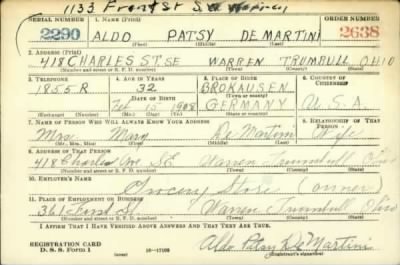 133 Front St S.W. Warren
SERIAL NUMBER 1. NAME (Print) ORDER NUMBER
2290 ALDO PATSY DE MARTINI 2638
(First) (Middle) (Last)
2. ADDRESS (Print)
418 CHARLES ST. SE WARREN TRUMBULL OHIO
(Number and street or R. F. D. number) (Town) (County) (State)
3. TELEPHONE 4. AGE IN YEARS 5. PLACE OF BIRTH 6. COUNTRY OF CITIZENSHIP
1855 R 32 BROKAUSEN
DATE OF BIRTH (Town or county)
Feb 15 1908 GERMANY U.S.A.
(Exchange) (Number) (Mo.) (Day) (Yr.) (State or country)
7. NAME OF PERSON WHO WILL ALWAYS KNOW YOUR ADDRESS 8. RELATIONSHIP OF THAT PERSON
Mrs. Mary De Martini Wife
(Mr., Mrs., Miss) (First) (Middle) (Last)
9. ADDRESS OF THAT PERSON
418 Charles Ave S.E. Warren Trumbull Ohio
(Number and street or R. F. D. number) (Town) (County) (State)
10. EMPLOYER'S NAME
Grocery Store (owner)
11. PLACE OF EMPLOYMENT OR BUSINESS
361 St. Warren Trumbull Ohio
(Number and street or R. F. D. number) (Town) (County) (State)
I AFFIRM THAT I HAVE VERIFIED ABOVE ANSWERS AND THAT THEY ARE TRUE.
REGISTRATION CARD
D. S. S. Form 1 16—17105 Aldo Patsy DeMartini
(Registrant's signature)